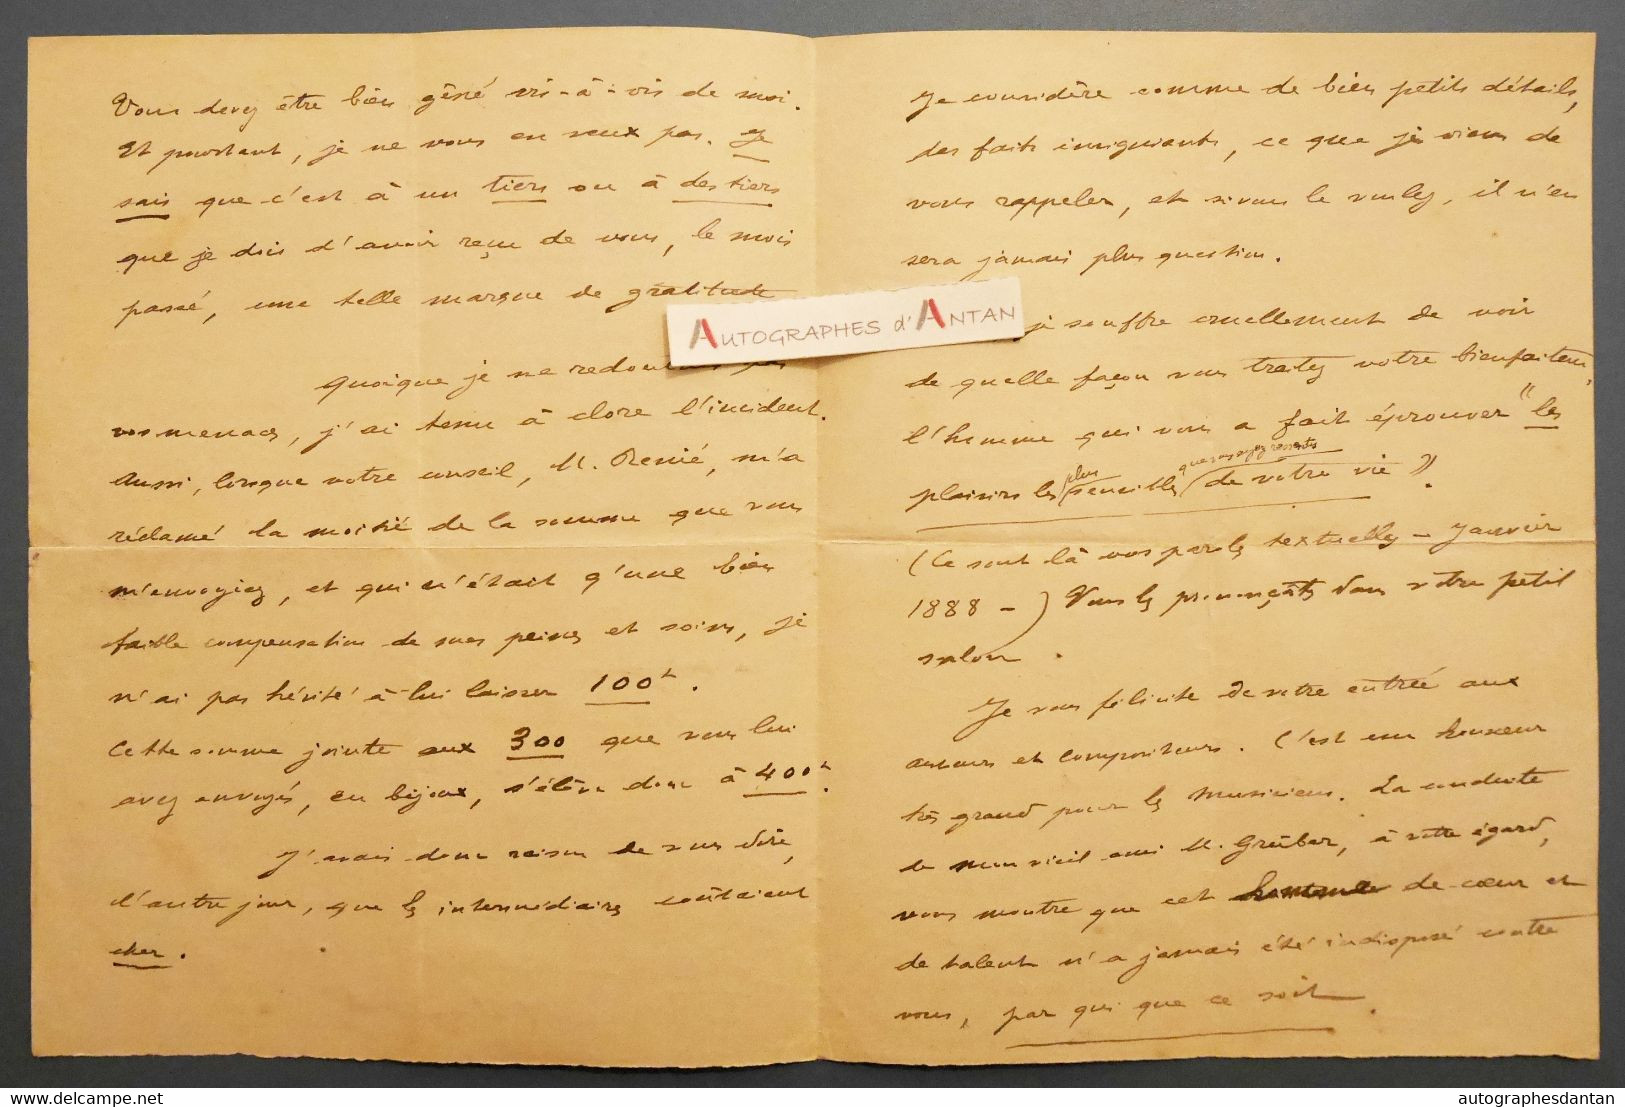 Vous devez être bien gêné vis-à-vis de moi.
Et pourtant, je ne vous en veux pas. Je
sais que c'est à un tiers ou à des tiers
que je dois d'avoir reçu de vous, le mois
passé, une telle marque de gratitude
quoique je ne redoutais pas
vos menaces, j'ai tenu à clore l'incident.
Aussi, lorsque votre conseil, M. Renié, m'a
réclamé la moitié de la somme que vous
m'envoyiez, et qui n'était q'une bien
faible compensation de mes peines et soins, je
n'ai pas hésité à lui laisser 100f.
Cette somme jointe aux 300 que vous lui
avez envoyés, en bijoux, s'élève donc à 400f.
J'avais donc raison de vous dire,
l'autre jour, que les intermédiaires coûtaient
cher.
Je considère comme de bien petits détails,
des faits insignifiants, ce que je viens de
vous rappeler, et si vous le voulez, il n'en
sera jamais plus question.
je souffre cruellement de voir
de quelle façon vous traitez votre bienfaiteur,
l'homme qui vous a fait éprouver "les
plus que vous ayez ressentis
plaisirs les sensibles de votre vie".
(Ce sont là vos paroles textuelles - Janvier
1888 -) Vous les prononçâtes dans votre petit
salon.
Je vous félicite de votre entrée aux
auteurs et compositeurs. C'est un honneur
très grand pour les musiciens. La conduite
de mon vieil ami M. Grüber, à votre égard,
vous montre que cet homme de cœur et
de talent n'a jamais été indisposé contre
vous, par qui que ce soit.
AUTOGRAPHES d'ANTAN
delcampe.net
autographesdantan